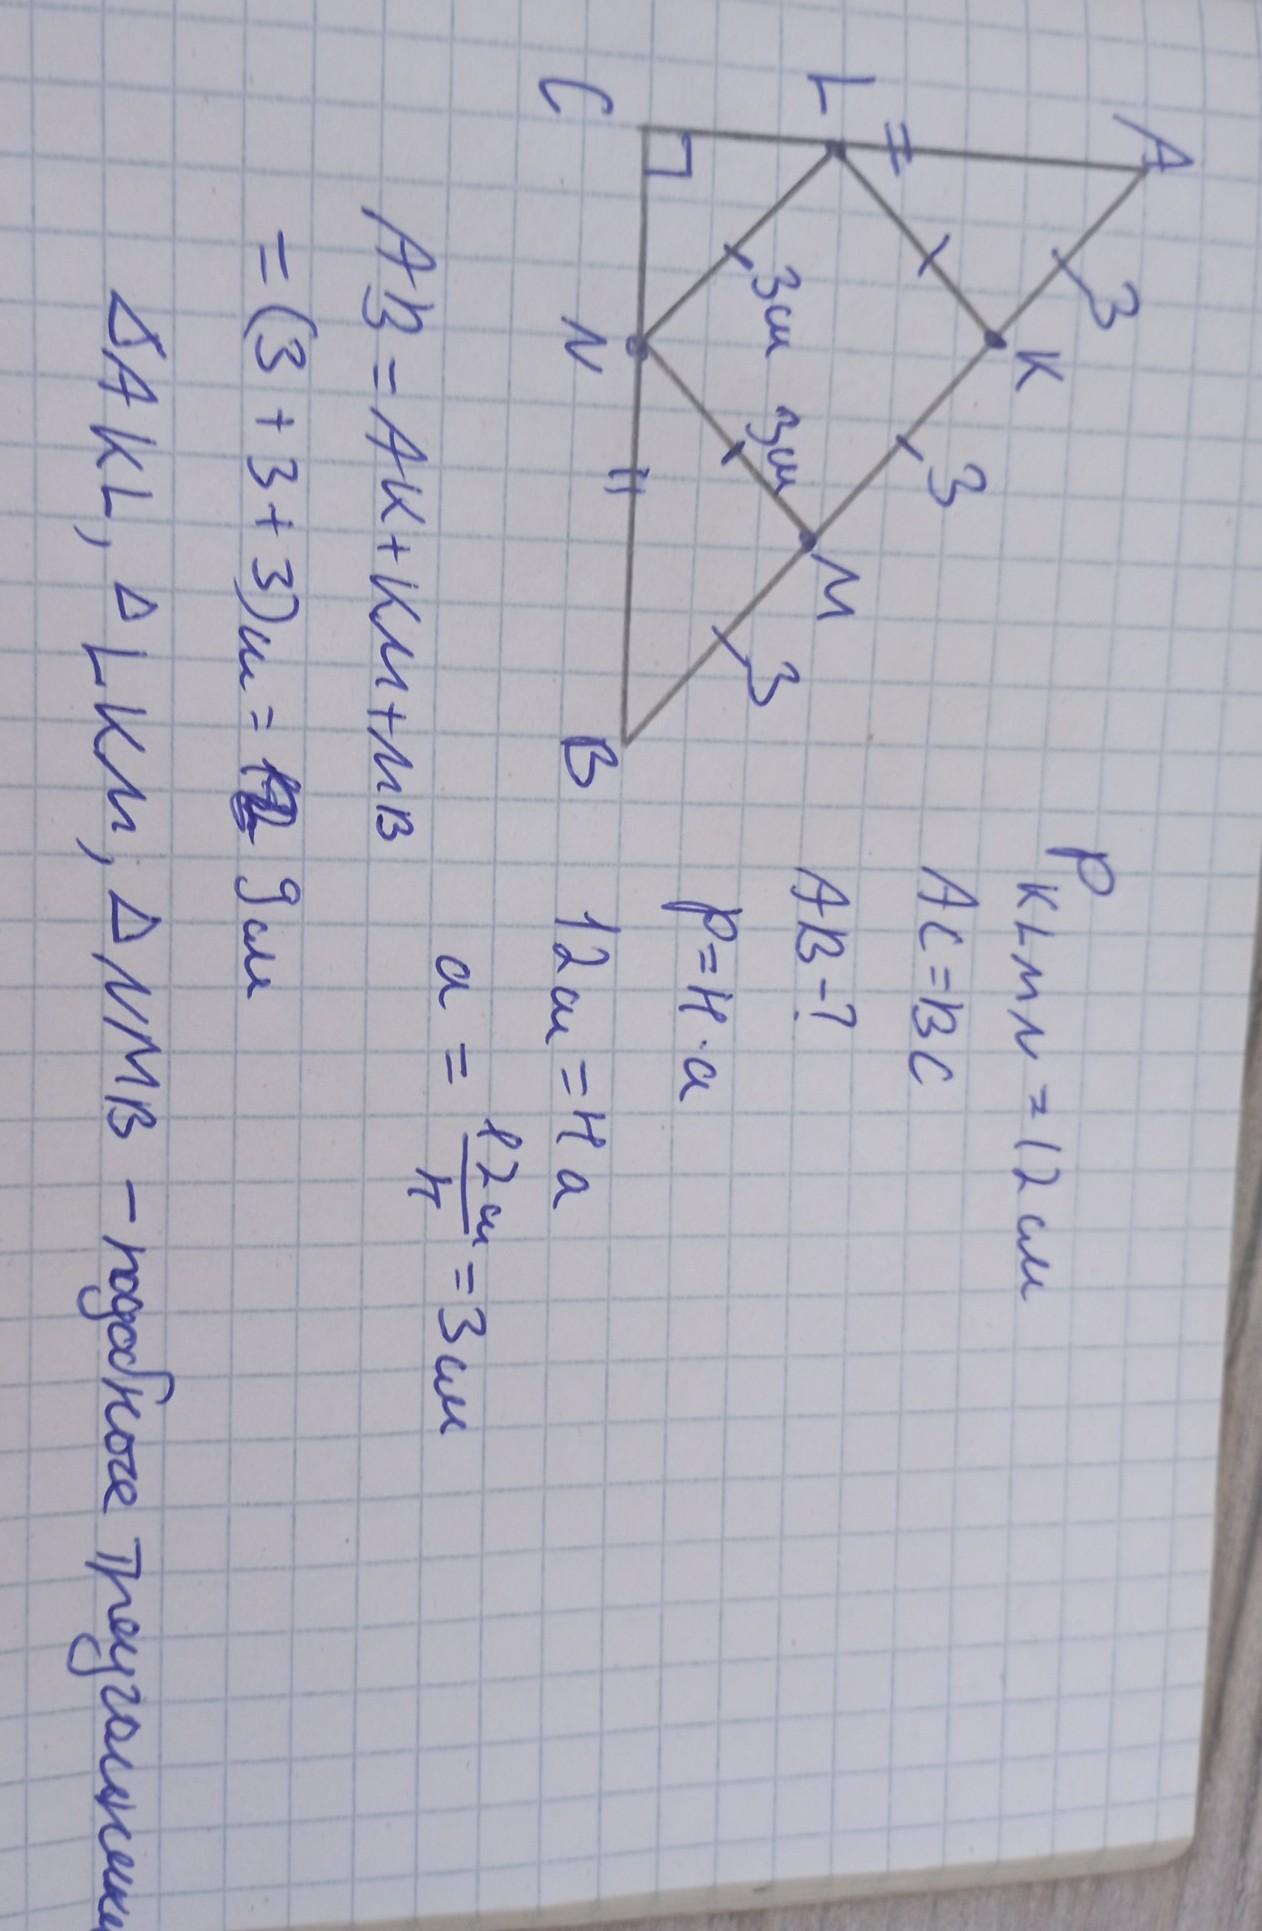 A
3
K
3
M
3
B
L
3см
3см
C
N
P KLMN = 12 см
AC = BC
AB - ?
P = 4 · a
12 см = 4 a
a = 12 см / 4 = 3 см
AB = AK + KM + MB
= (3 + 3 + 3) см = 9 см
Δ AKL, Δ LKM, Δ NMB - подобные треугольники